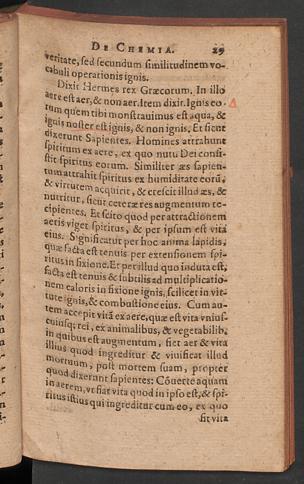 DE CHEMIA. 29
veritate, sed secundum similitudinem vo-
cabuli operationis ignis.
Dixit Hermes rex Græcorum. In illo
aere est aer, & non aer. Item dixit. Ignis eo-
rum quem tibi monstrauimus est aqua, &
ignis noster est ignis, & non ignis. Et sicut
dixerunt Sapientes. Homines attrahunt
spiritum ex aere, ex quo nutu Dei consi-
stit spiritus eorum. Similiter æs sapien-
tum attrahit spiritus ex humiditate eorũ,
& virtutem acquirit, & crescit illud æs, &
nutritur, sicut ceteræ res augmentum re-
cipientes. Et scito quod per attractionem
aeris viget spiritus, & per ipsum est vita
eius. Significatur per hoc anima lapidis,
quæ facta est tenuis per extensionem spi-
ritus in fixione. Et per illud quo induta est,
facta est tenuis & subtilis ad multiplicatio-
nem caloris in fixione ignis, scilicet in vir-
tute ignis, & combustione eius. Cum au-
tem accepit vitã ex aere, quæ est vita vnius-
cuiusq; rei, ex animalibus, & vegetabilib.
in quibus est augmentum, fiet aer & vita
illius quod ingreditur & viuificat illud
mortuum, post mortem suam, propter
quod dixerunt sapientes: Cõuerte aquam
in aerem, vt fiat vita quod in ipso est, & spi-
ritus istius qui ingreditur cum eo, ex quo
fit vita